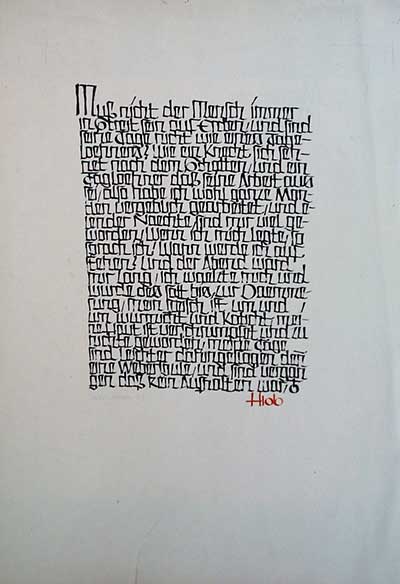 Muß nicht der Mensch immer
in Streit sein auf Erden/und sind
seine Tage nicht wie eines Tage-
loehners? wie ein Knecht sich seh-
net nach dem Schatten/und ein
Tagloehner daß seine Arbeit aus
sei/also habe ich wohl ganze Mon-
den vergebuch gearbeitet/und e-
lender Naechte sind mir viel ge-
worden/Wenn ich mich legte/so
sprach ich/Wann werde ich auf-
stehen? und der Abend ward
mir lang/ich waelzte mich und
wurde des satt bis zur Daemme-
rung/mein Fleisch ist um und
um wurmicht und koticht/mei-
ne Haut ist verschrumpft und zu
nichte geworden/meine Tage
sind leichter dahingeflogen denn
eine Weberspule/und sind vergan-
gen daß kein Aufhalten war/
Hiob